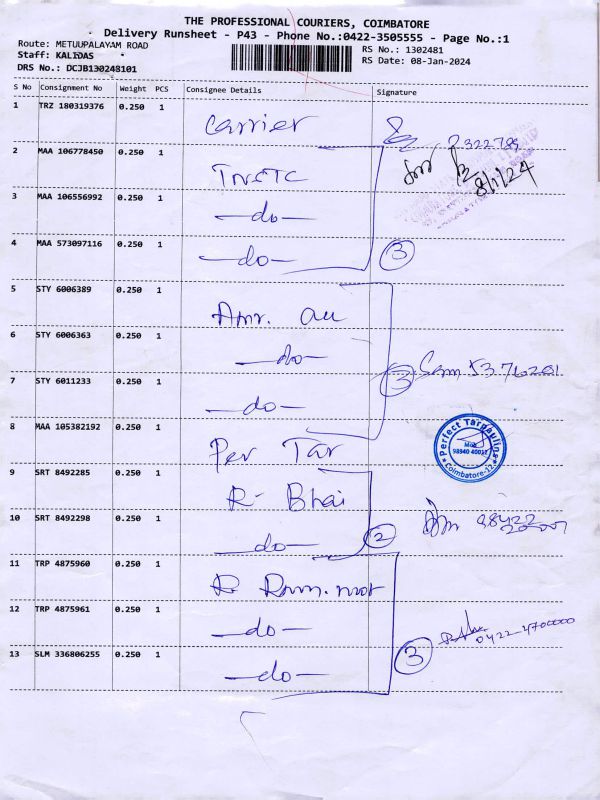 THE PROFESSIONAL COURIERS, COIMBATORE
Delivery Runsheet - P43 - Phone No.:0422-3505555 - Page No.:1
Route: METUUPALAYAM ROAD
RS No.: 1302481
Staff: KALIDAS
RS Date: 08-Jan-2024
DRS No.: DCJB130248101
S No Consignment No Weight PCS Consignee Details Signature
1 TRZ 180319376 0.250 1 Carrier
2322789
2 MAA 106778450 0.250 1 TNSTC
8/1/24
3 MAA 106556992 0.250 1 —do—
4 MAA 573097116 0.250 1 —do— 3
5 STY 6006389 0.250 1 Amr.
6 STY 6006363 0.250 1 —do—
7 STY 6011233 0.250 1 —do— 3
8 MAA 105382192 0.250 1 Per Tar
Perfect Tarpaulins
Coimbatore-12
9 SRT 8492285 0.250 1 R- Bhai
10 SRT 8492298 0.250 1 —do— 2
11 TRP 4875960 0.250 1
12 TRP 4875961 0.250 1 —do—
0422-4700000
13 SLM 336806255 0.250 1 —do— 3